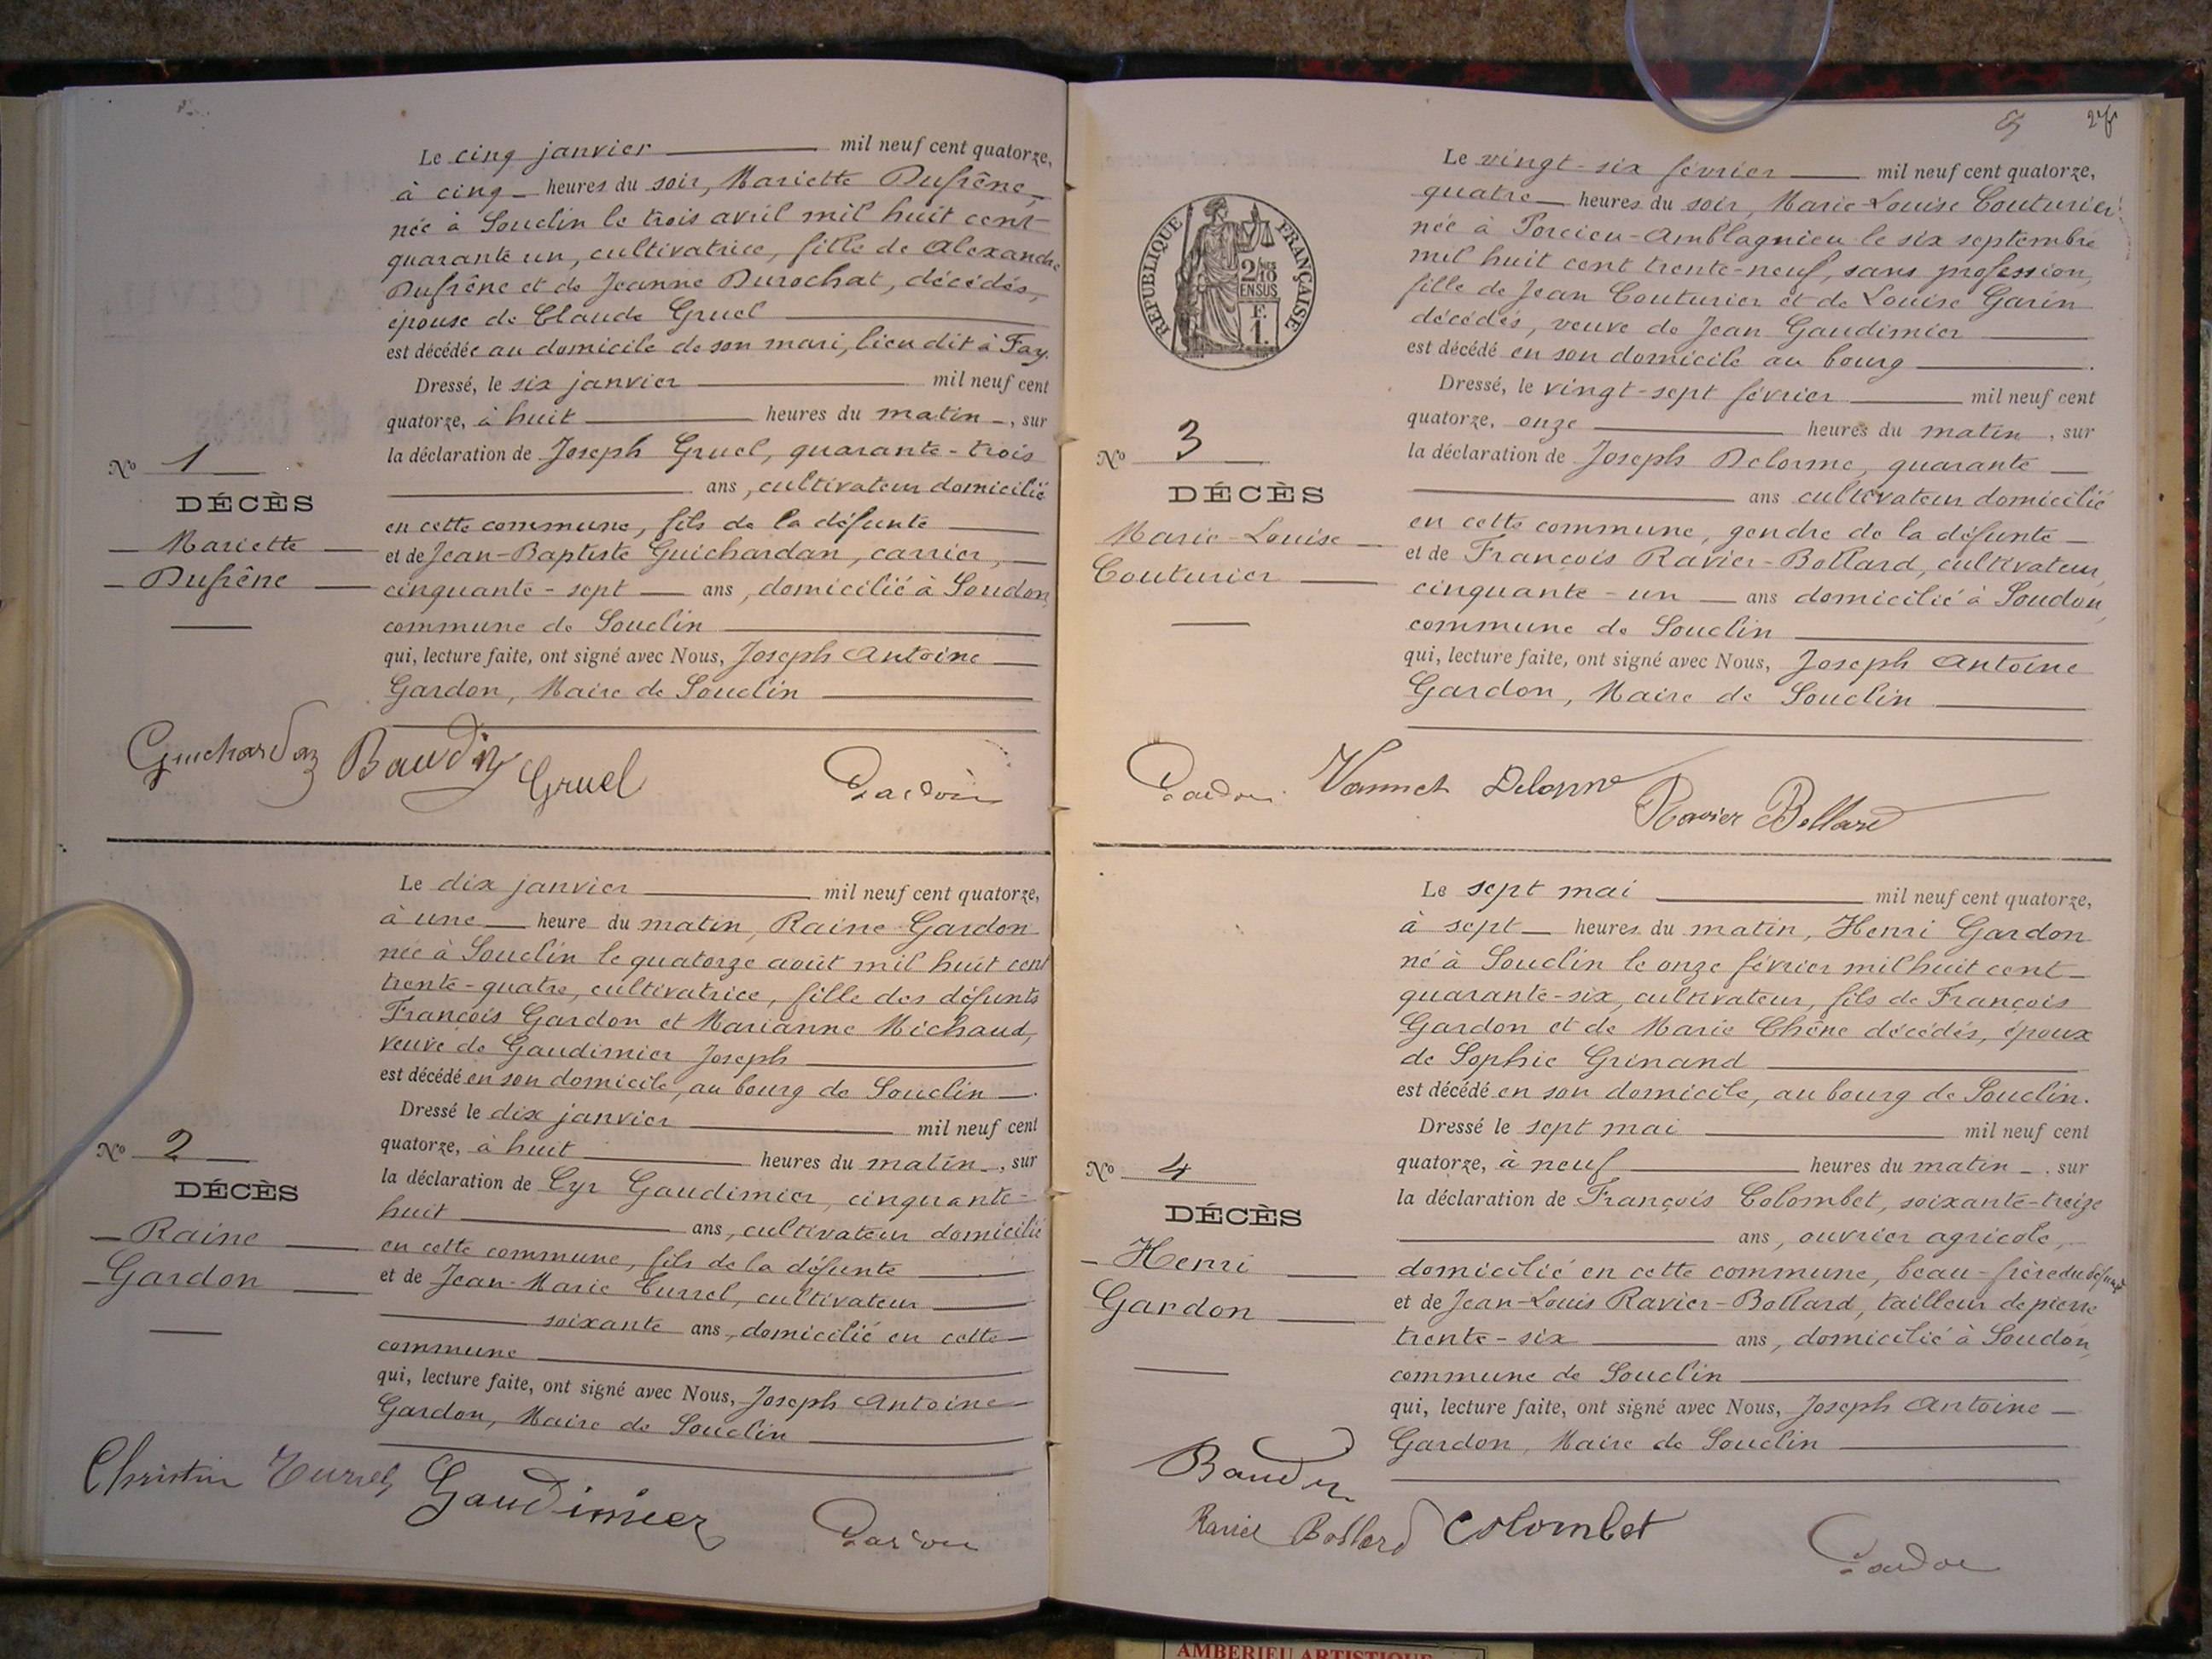 Le cinq janvier mil neuf cent quatorze,
à cinq heures du soir, Mariette Dufrêne,
née à Souclin le trois avril mil huit cent
quarante un, cultivatrice, fille de Alexandre
Dufrêne et de Jeanne Durochat, décédés,
épouse de Claude Gruel
est décédée au domicile de son mari, lieu dit à Fay.
Dressé, le six janvier mil neuf cent
quatorze, à huit heures du matin, sur
la déclaration de Joseph Gruel, quarante-trois
ans, cultivateur domicilié
en cette commune, fils de la défunte
et de Jean-Baptiste Guichardan, carrier,
cinquante-sept ans, domicilié à Soudon,
commune de Souclin
qui, lecture faite, ont signé avec Nous, Joseph Antoine
Gardon, Maire de Souclin
No 1
DÉCÈS
Mariette
Dufrêne
Guichardan Baudin Gruel Gardon
Le dix janvier mil neuf cent quatorze,
à une heure du matin, Raine Gardon
née à Souclin le quatorze août mil huit cent
trente-quatre, cultivatrice, fille des défunts
François Gardon et Marianne Michaud,
veuve de Gaudimier Joseph
est décédé en son domicile, au bourg de Souclin.
Dressé le dix janvier mil neuf cent
quatorze, à huit heures du matin, sur
la déclaration de Cyr Gaudimier, cinquante-
huit ans, cultivateur domicilié
en cette commune, fils de la défunte
et de Jean-Marie Turrel, cultivateur
soixante ans, domicilié en cette
commune
qui, lecture faite, ont signé avec Nous, Joseph Antoine
Gardon, Maire de Souclin
No 2
DÉCÈS
Raine
Gardon
Christin Turrel Gaudimier Gardon
RÉPUBLIQUE FRANÇAISE
2/10
EN SUS
F.
1.
Le vingt-six février mil neuf cent quatorze,
quatre heures du soir, Marie-Louise Couturier
née à Porcieu-Amblagnieu le six septembre
mil huit cent trente-neuf, sans profession,
fille de Jean Couturier et de Louise Garin
décédés, veuve de Jean Gaudimier
est décédé en son domicile au bourg.
Dressé, le vingt-sept février mil neuf cent
quatorze, onze heures du matin, sur
la déclaration de Joseph Delorme, quarante
ans cultivateur domicilié
en cette commune, gendre de la défunte
et de François Ravier-Bollard, cultivateur,
cinquante-un ans domicilié à Soudon,
commune de Souclin
qui, lecture faite, ont signé avec Nous, Joseph Antoine
Gardon, Maire de Souclin
No 3
DÉCÈS
Marie-Louise
Couturier
Gardon Delorme
Ravier Bollard
Le sept mai mil neuf cent quatorze,
à sept heures du matin, Henri Gardon
né à Souclin le onze février mil huit cent
quarante-six, cultivateur, fils de François
Gardon et de Marie Chêne décédés, époux
de Sophie Grinand
est décédé en son domicile, au bourg de Souclin.
Dressé le sept mai mil neuf cent
quatorze, à neuf heures du matin, sur
la déclaration de François Colombet, soixante-treize
ans, ouvrier agricole,
domicilié en cette commune, beau-frère du défunt
et de Jean-Louis Ravier-Bollard, tailleur de pierre
trente-six ans, domicilié à Soudon,
commune de Souclin
qui, lecture faite, ont signé avec Nous, Joseph Antoine
Gardon, Maire de Souclin
No 4
DÉCÈS
Henri
Gardon
Baudin
Ravier Bollard Colombet Gardon
AMBERIEU ARTISTIQUE